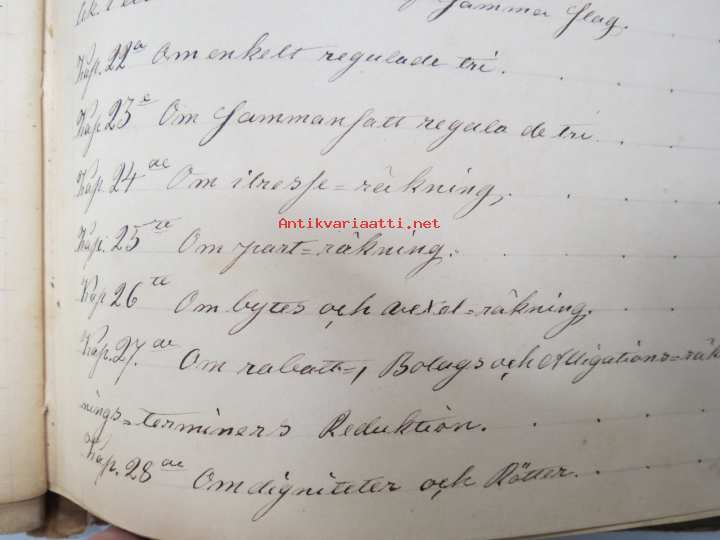 Samma slag.
Kap. 22a Om enkelt regulade tri.
Kap 23e Om Sammansatt regula de tri
Kap. 24de Om itresse=räkning,
Antikvariaatti.net
Kap. 25te Om part=räkning.
Kap 26te Om bytes och vexel=räkning,
Kap. 27.de Om rabatt=, Bolags och Alligations=räk
nings=terminers Reduktion.
Kap. 28de Om digniteter och Rötter.